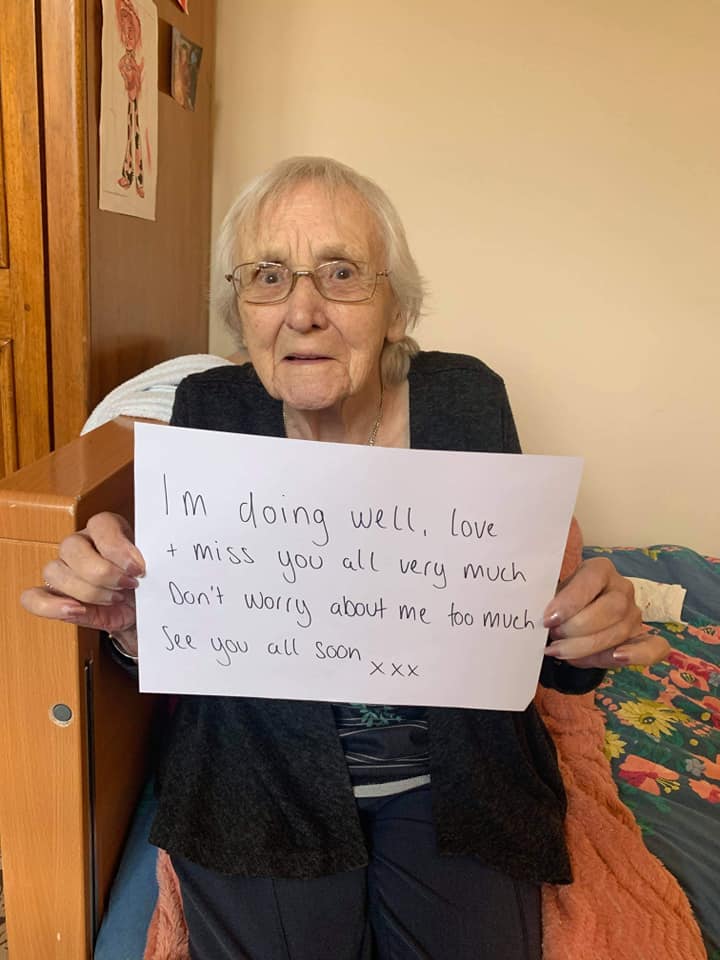 Im doing well, love
+ miss you all very much
Don't worry about me too much
See you all soon xxx